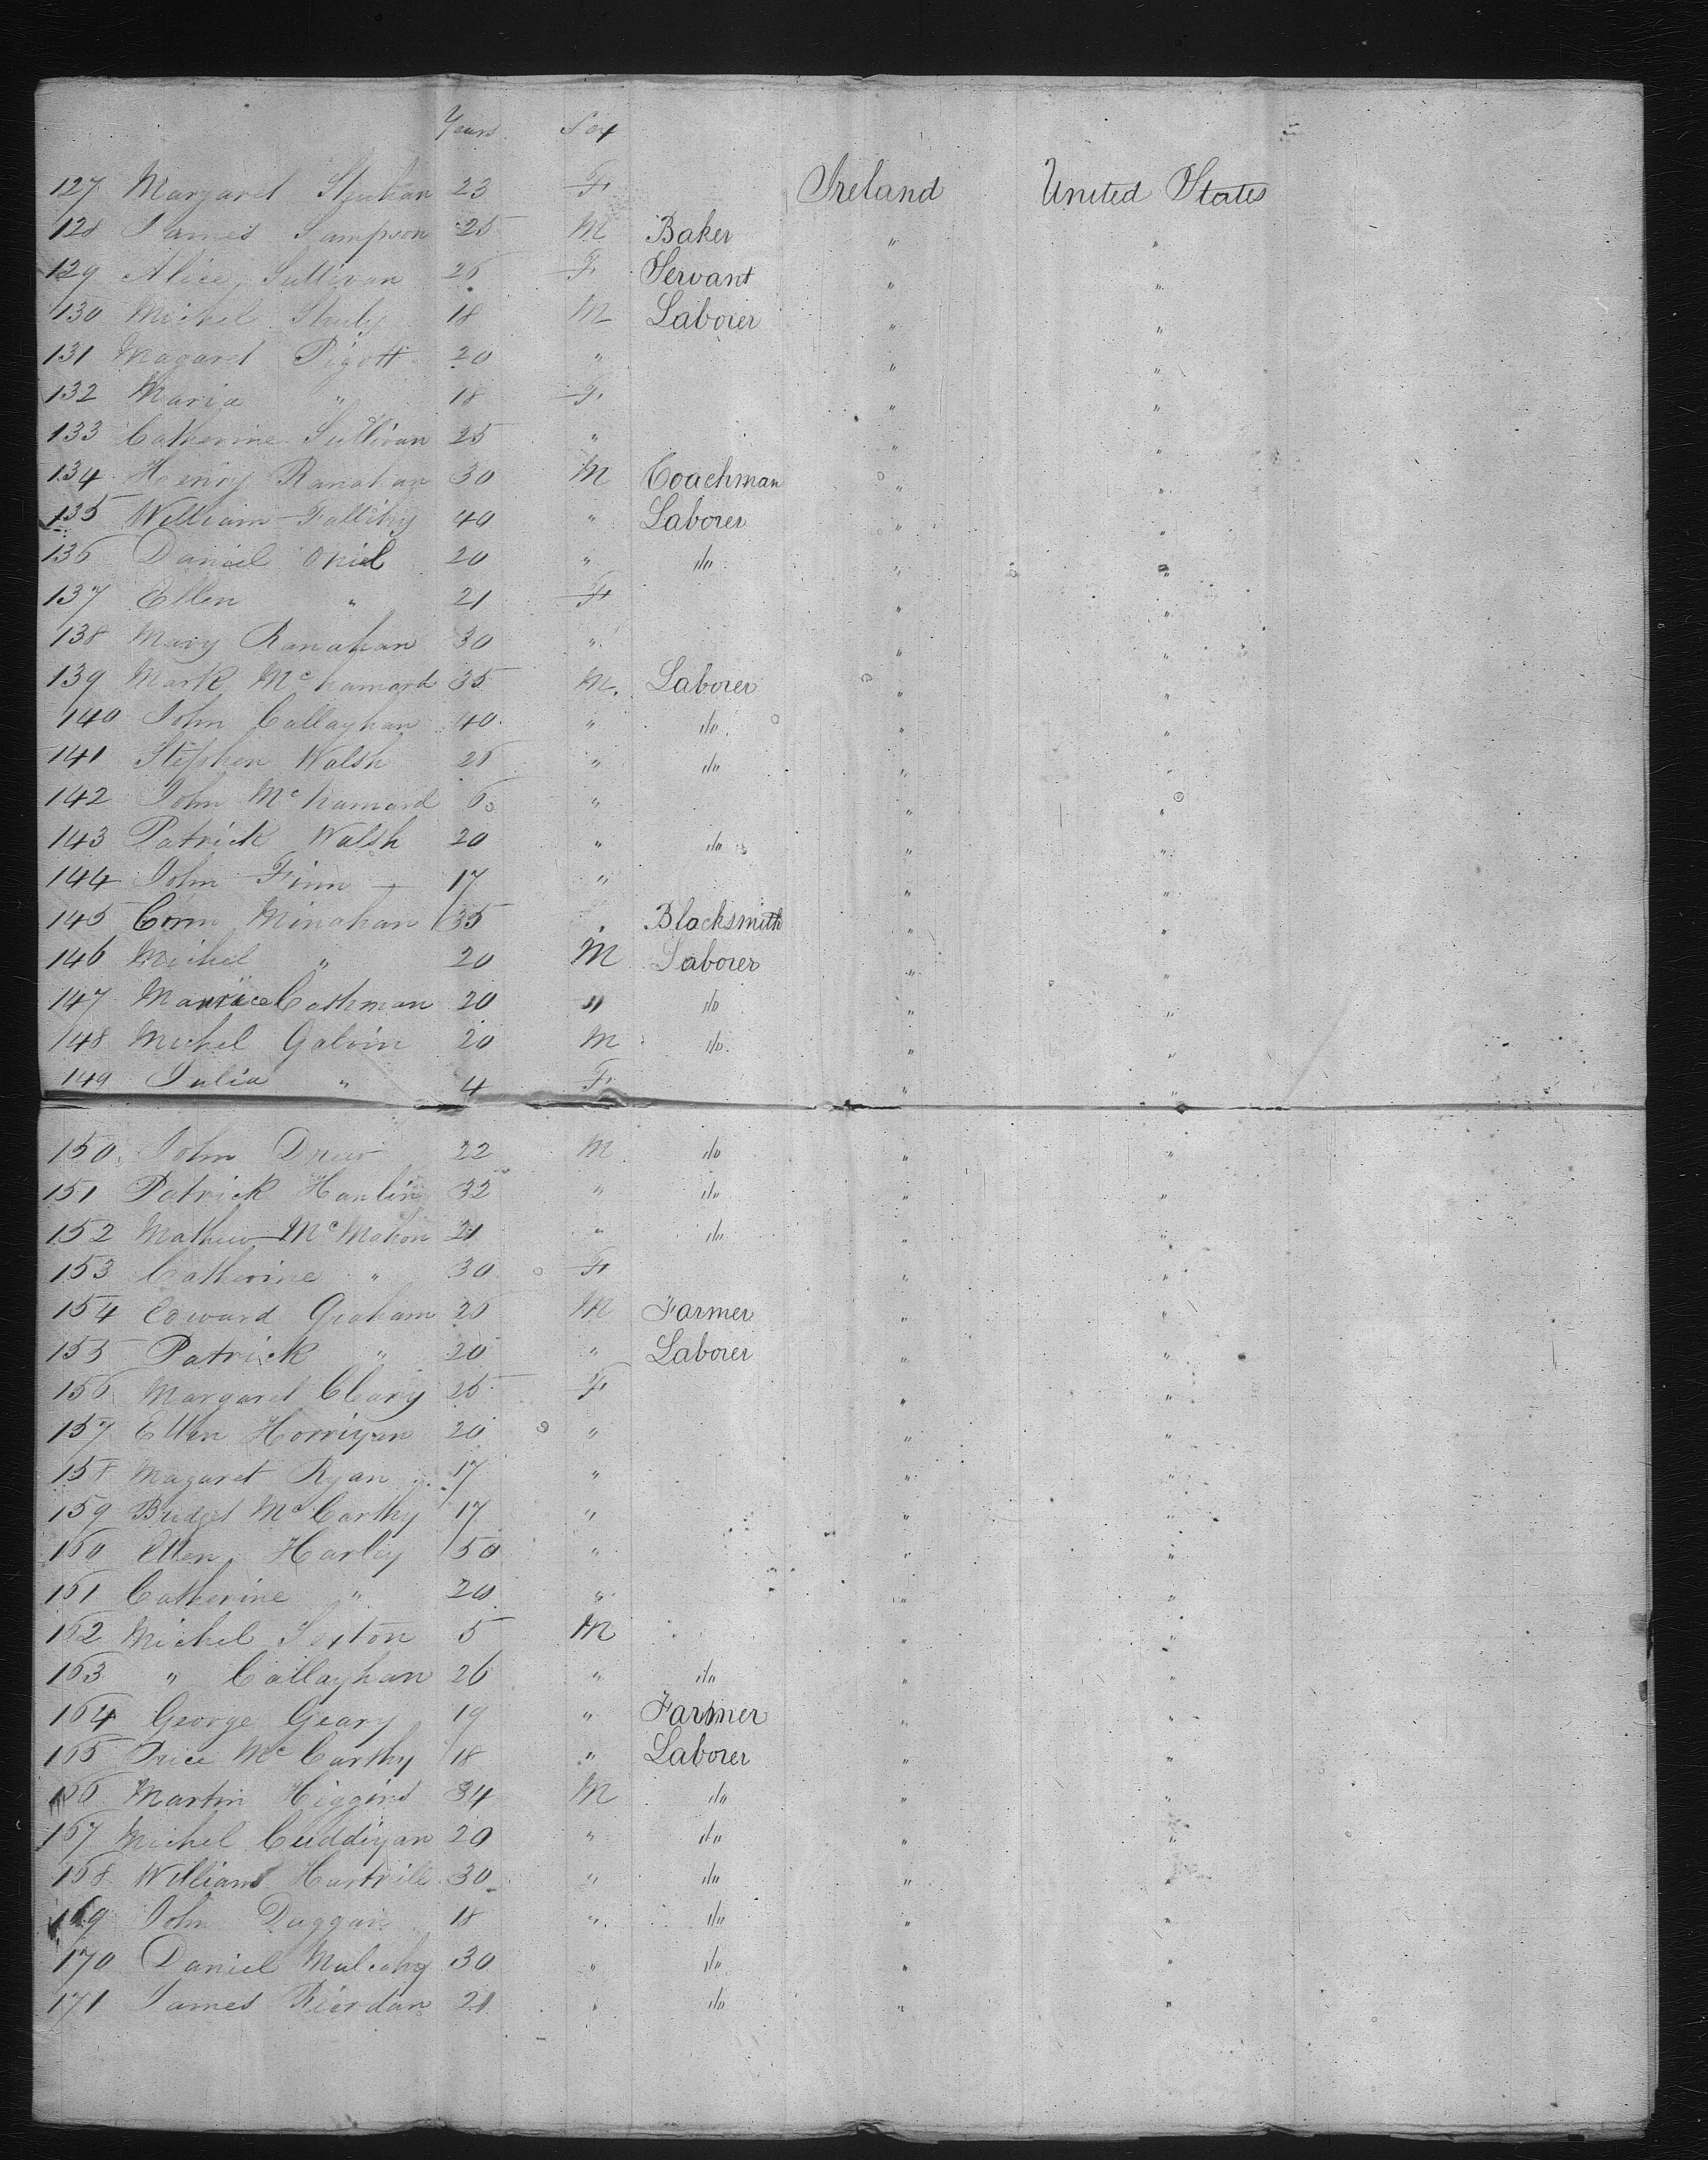 Years Sex
127 Margaret 23 F Ireland United States
128 James Sampson 25 M Baker " "
129 Alice Sullivan 26 F Servant " "
130 Michel Shuly 18 M Laborer " "
131 Magaret Pigott 20 " " "
132 Maria " 18 F " "
133 Catherine Sullivan 25 " " "
134 Henry Ranahan 30 M Coachman " "
135 William Fallihy 40 " Laborer " "
136 Daniel Oniel 20 " do " "
137 Ellen " 21 F " "
138 Mary Ranahan 30 " " "
139 Mark McNamard 35 M. Laborer " "
140 John Callaghan 40 " do " "
141 Stephen Walsh " do " "
142 John McNamard 6 " " "
143 Patrick Walsh 20 " do " "
144 John Finn 17 " " "
145 Corn Minahan 35 Blacksmith " "
146 Michel " 20 M Laborer " "
147 Maurice Cashman 20 " do " "
148 Michel Galvin 20 M do " "
149 Julia " 4 F " "
150 John Drew 22 M do " "
151 Patrick Hanlin 32 " do " "
152 Mathew McMahon 21 " do " "
153 Catherine " 30 F " "
154 Edward Graham 26 M Farmer " "
155 Patrick " 20 " Laborer " "
156 Margaret Cleary 25 F " "
157 Ellen Horrigan 20 " " "
158 Magaret Ryan 17 " " "
159 Bridget McCarthy 17 " " "
160 Ellen Harley 50 " " "
161 Catherine " 20 " " "
162 Michel Sexton 5 M " "
163 " Callaghan 26 " do " "
164 George Geary 19 " Farmer " "
165 McCarthy 18 " Laborer " "
166 Martin Higgins 34 M do " "
167 Michel Cuddigan 20 " do " "
168 William Hartnill 30 " do " "
169 John Duggan 18 " do " "
170 Daniel Mulcahy 30 " do " "
171 James Riordan 21 " do " "